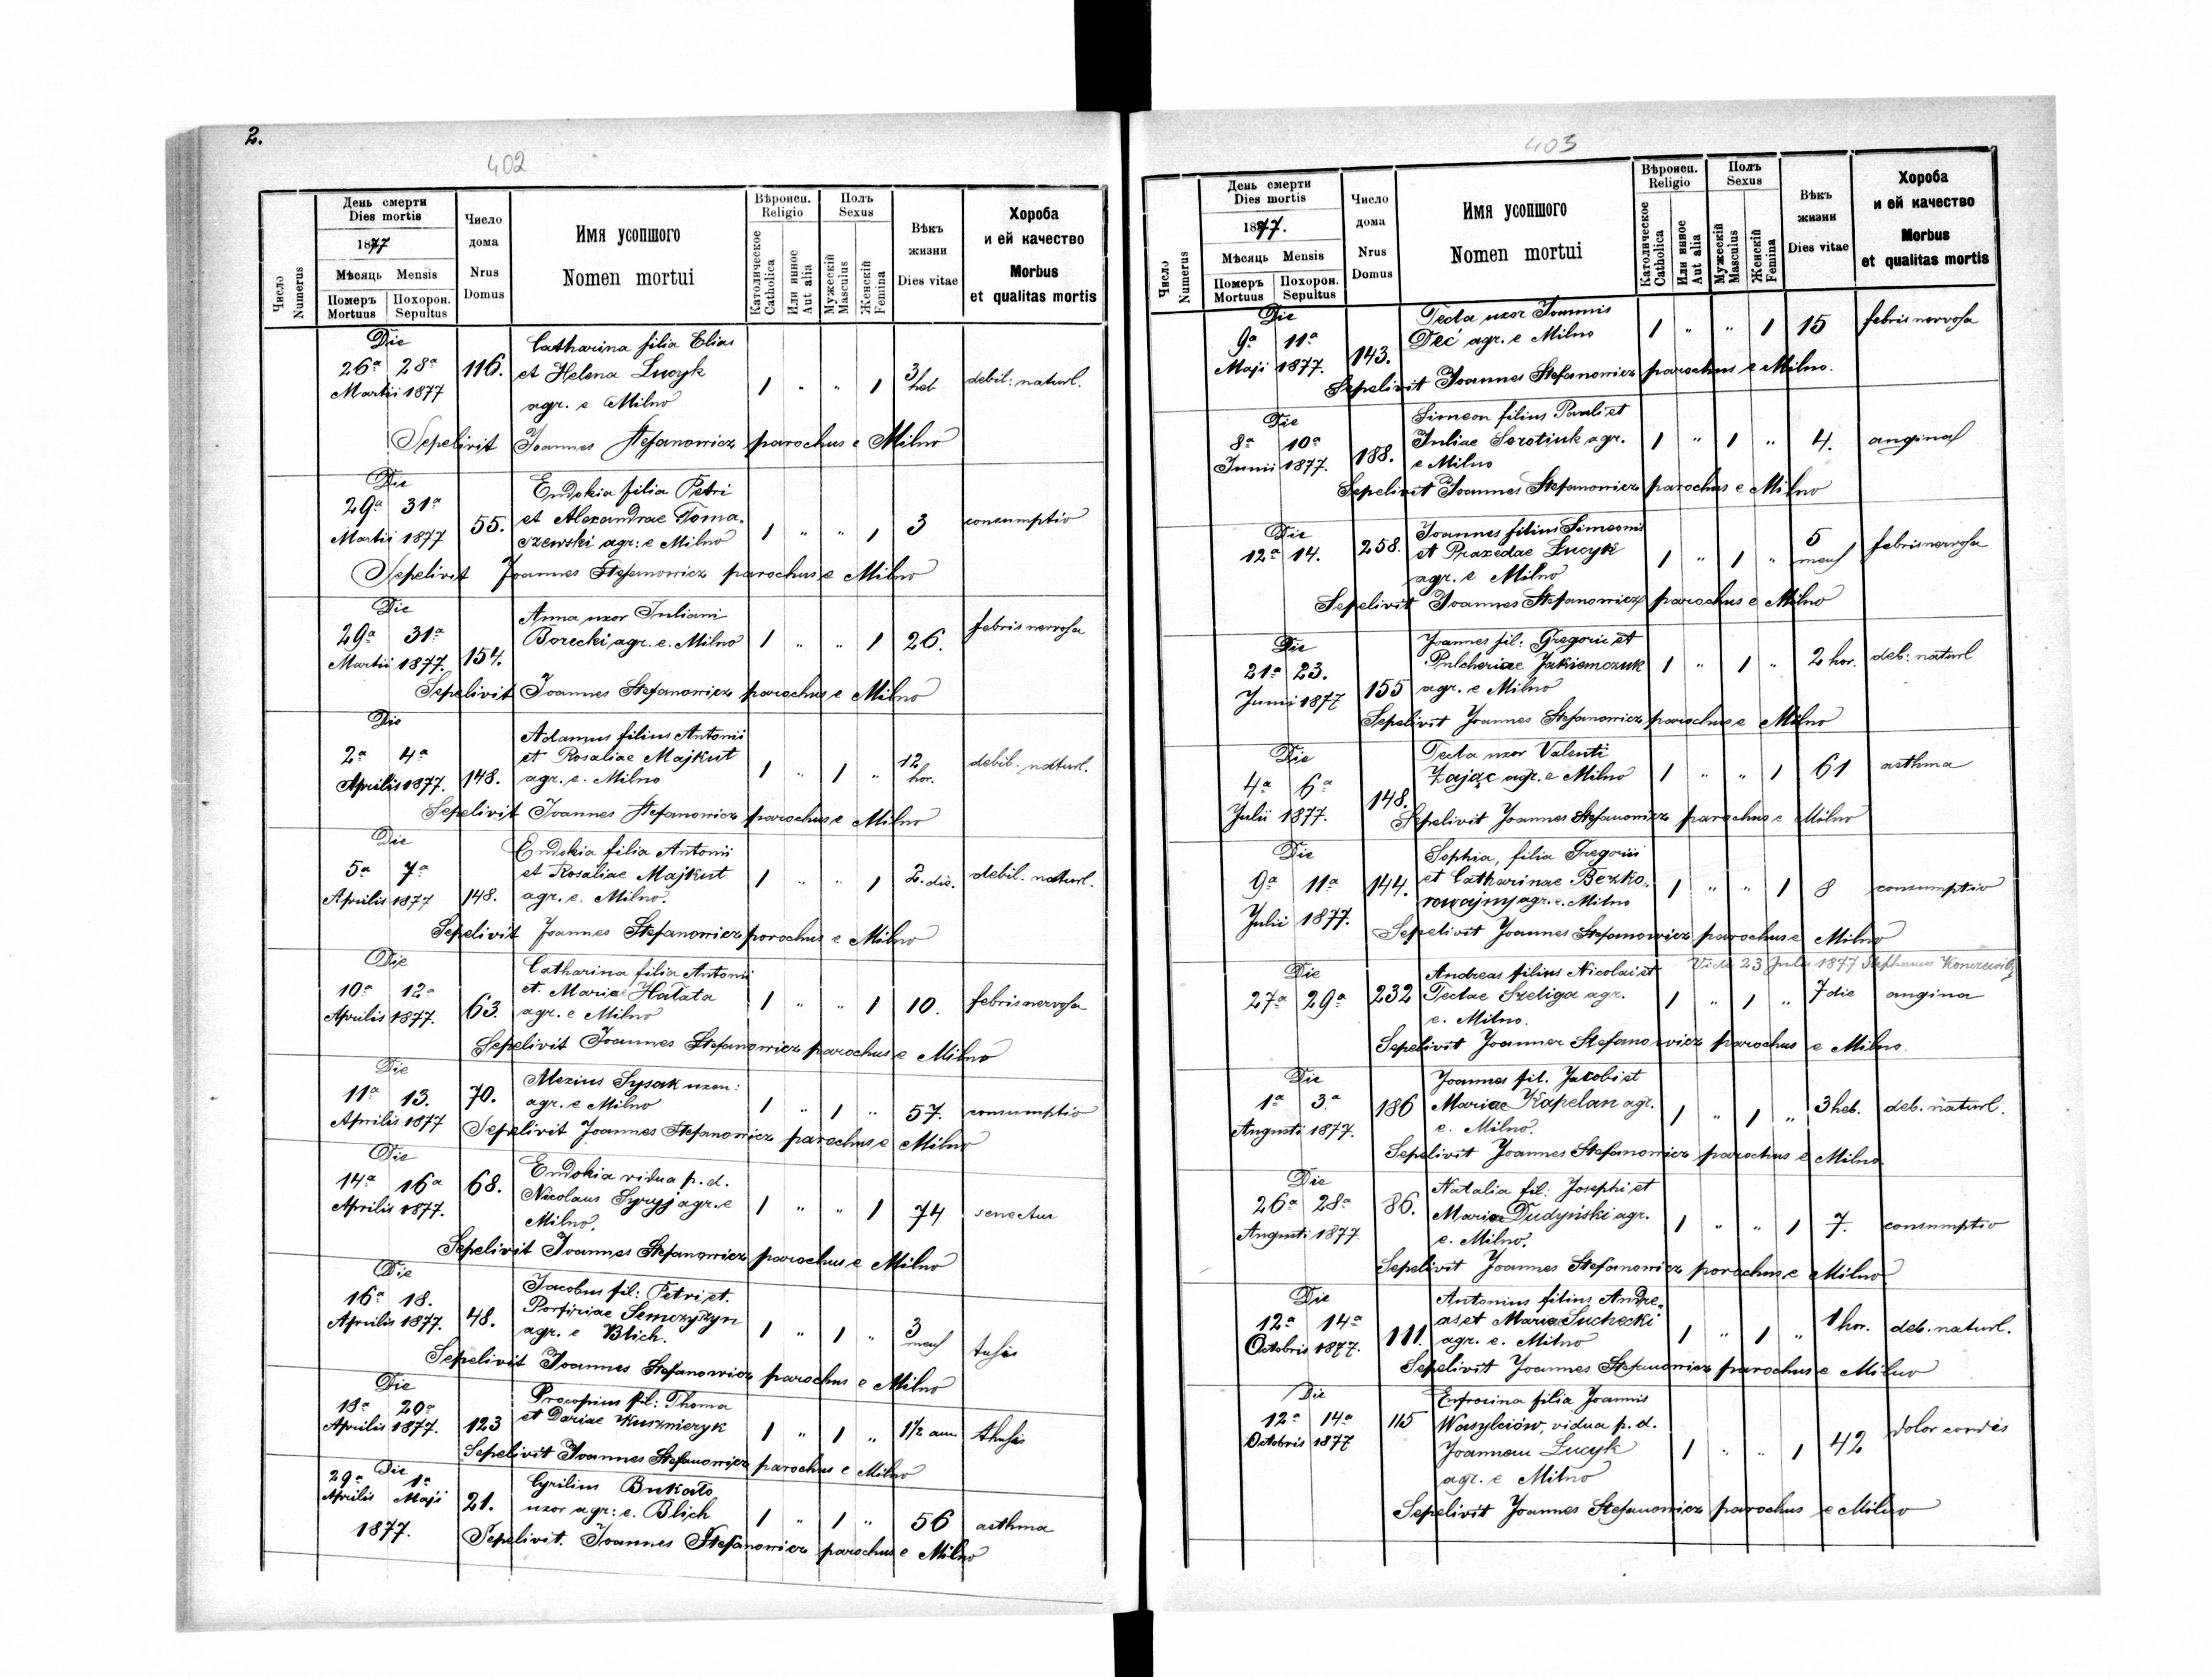 2.
402
Число
Numerus
День смерти
Dies mortis
1877
Мѣсяць Mensis
Померъ Похорон.
Mortuus Sepultus
Число
дома
Nrus
Domus
Имя усопшого
Nomen mortui
Вѣроисп.
Religio
Католическое
Catholica
Или инное
Aut alia
Полъ
Sexus
Мужескій
Masculus
Женскій
Femina
Вѣкъ
жизни
Dies vitae
Хороба
и ей качество
Morbus
et qualitas mortis
Die
26ª 28ª
Martii 1877
116.
Catharina filia Elias
et Helena Lucyk
agr. e Milno
1 " " 1
3 heb
debil: naturl.
Sepelivit Joannes Stefanowicz parochus e Milno
Die
29ª 31ª
Martii 1877
55.
Eudokia filia Petri
et Alexandrae Toma-
szewski agr: e Milno
1 " " 1
3
consumptio
Sepelivit Joannes Stefanowicz parochus e Milno
Die
29ª 31ª
Martii 1877.
154.
Anna uxor Juliani
Borecki agr. e. Milno
1 " " 1
26.
febris nervosa
Sepelivit Joannes Stefanowicz parochus e Milno
Die
2ª 4ª
Aprilis 1877.
148.
Adamus filius Antonii
et Rosaliae Majkut
agr. e. Milno
1 " 1 "
12
hor.
debil. naturl.
Sepelivit Joannes Stefanowicz parochus e Milno
Die
5ª 7ª
Aprilis 1877
148.
Eudokia filia Antonii
et Rosaliae Majkut
agr. e. Milno.
1 " " 1
2. die.
debil. naturl.
Sepelivit Joannes Stefanowicz parochus e Milno
Die
10ª 12ª
Aprilis 1877.
63.
Catharina filia Antonii
et. Mariae Hałata
agr. e Milno
1 " " 1
10.
febris nervosa
Sepelivit Joannes Stefanowicz parochus e Milno
Die
11ª 13.
Aprilis 1877
70.
Alexius Sysak uxor:
agr. e Milno
1 " 1 "
57.
consumptio
Sepelivit Joannes Stefanowicz parochus e Milno
Die
14ª 16ª
Aprilis 1877.
68.
Eudokia vidua p. d.
Nicolaus Syryj agr. e
Milno.
1 " " 1
74
senectus
Sepelivit Joannes Stefanowicz parochus e Milno
Die
16ª 18.
Aprilis 1877.
48.
Jacobus fil: Petri et.
Porfiriae Semczyszyn
agr. e Blich.
1 " 1 "
3
mens
tusis
Sepelivit Joannes Stefanowicz parochus e Milno
Die
18ª 20ª
Aprilis 1877.
123
Procopius fil: Thoma
et Dariae Kuszmieryk
1 " 1 "
1 1/2 ann
thusis
Sepelivit Joannes Stefanowicz parochus e Milno
Die
29ª 1ª
Aprilis Maji
1877.
21.
Cyrilius Bukaito
uxor agr: e. Blich
1 " 1 "
56
asthma
Sepelivit. Joannes Stefanowicz parochus e Milno
403
Число
Numerus
День смерти
Dies mortis
1877.
Мѣсяць Mensis
Померъ Похорон.
Mortuus Sepultus
Число
дома
Nrus
Domus
Имя усопшого
Nomen mortui
Вѣроисп.
Religio
Католическое
Catholica
Или инное
Aut alia
Полъ
Sexus
Мужескій
Masculus
Женскій
Femina
Вѣкъ
жизни
Dies vitae
Хороба
и ей качество
Morbus
et qualitas mortis
Die
9ª 11ª
Maji 1877.
143.
Tecta uxor Joannis
Deć agr. e Milno
1 " " 1
15
febris nervosa
Sepelivit Joannes Stefanowicz parochus e Milno.
Die
8ª 10ª
Junii 1877.
188.
Simeon filius Pauli et
Juliae Sorotiuk agr.
e Milno
1 " 1 "
4.
angina
Sepelivit Joannes Stefanowicz parochus e Milno
Die
12ª 14.
258.
Joannes filius Simeonis
et Praxedae Lucyk
agr. e Milno
1 " 1 "
5
mens
febris nervosa
Sepelivit Joannes Stefanowicz parochus e Milno
Die
21ª 23.
Junii 1877
155
Joannes fil: Gregorii et
Pulcheriae Jakiemczuk
agr. e Milno
1 " 1 "
2 hor.
deb: naturl
Sepelivit Joannes Stefanowicz parochus e Milno
Die
4ª 6ª
Julii 1877.
148.
Tecta uxor Valenti
Zając agr. e Milno
1 " " 1
61
asthma
Sepelivit Joannes Stefanowicz parochus e Milno
Die
9ª 11ª
Julii 1877.
144.
Sophia, filia Gregorii
et Catharinae Bezko-
rowajny agr. e. Milno
1 " " 1
8
consumptio
Sepelivit Joannes Stefanowicz parochus e Milno
Vidi 23 Julii 1877 Stephanus
Die
27ª 29ª
232
Andreas filius Nicolai et
Tectae Szeliga agr.
e. Milno.
1 " 1 "
7 die
angina
Sepelivit Joannes Stefanowicz parochus e Milno.
Die
1ª 3.ª
Augusti 1877.
186
Joannes fil. Jakobi et
Mariae Kapelan agr.
e. Milno.
1 " 1 "
3 heb.
deb. naturl.
Sepelivit Joannes Stefanowicz parochus e Milno
Die
26ª 28ª
Augusti 1877
86.
Natalia fil: Josephi et
Mariae Dudyński agr.
e. Milno.
1 " " 1
7.
consumptio
Sepelivit Joannes Stefanowicz parochus e Milno
Die
12ª 14ª
Octobris 1877.
111.
Antonius filius Andre-
as et Mariae Suchecki
agr. e. Milno
1 " 1 "
1 hor.
deb. naturl.
Sepelivit Joannes Stefanowicz parochus e Milno
Die
12ª 14ª
Octobris 1877
115
Eufrosina filia Joannis
Wasylciów, vidua p. d.
Joannem Lucyk
agr. e Milno
1 " " 1
42
dolor cordis
Sepelivit Joannes Stefanowicz parochus e Milno